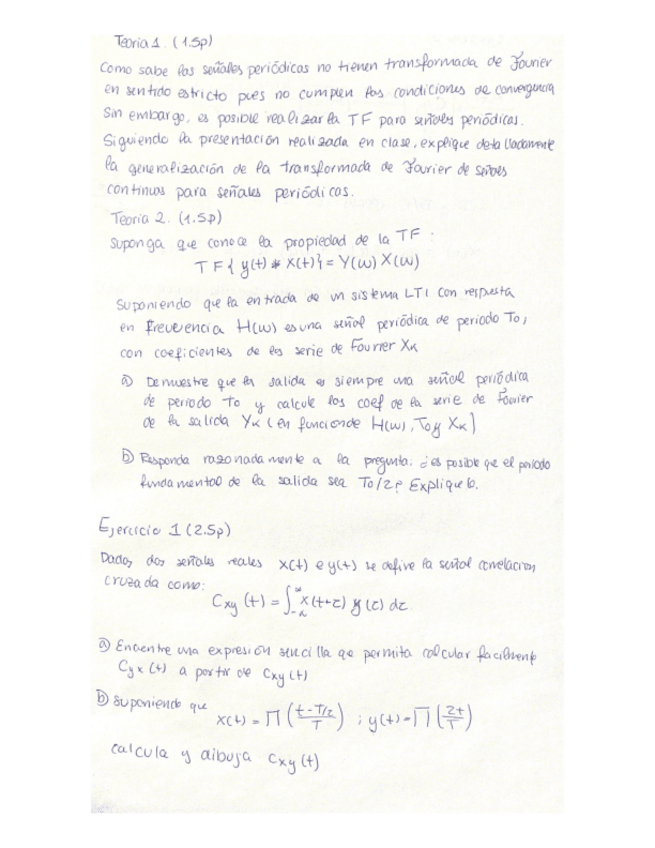 Teoria 1. (1.5p)
Como sabe las señales periódicas no tienen transformada de Fourier
en sentido estricto pues no cumplen las condiciones de convergencia
Sin embargo, es posible realizar la TF para señales periódicas.
Siguiendo la presentación realizada en clase, explique detalladamente
la generalización de la transformada de Fourier de señales
continuas para señales periódicas.
Teoria 2. (1.5p)
Suponga que conoce la propiedad de la TF.
TF{ y(t) * x(t)} = Y(ω) X(ω)
Suponiendo que la entrada de un sistema LTI con respuesta
en frecuencia H(ω) es una señal periódica de periodo To,
con coeficientes de los serie de Fourier Xk
a) Demuestre que la salida es siempre una señal periódica
de periodo To y calcule los coef de la serie de Fourier
de la salida Yk (en función de H(ω), To y Xk)
b) Responda razonadamente a la pregunta: ¿es posible que el periodo
fundamental de la salida sea To/2? Expliquelo.
Ejercicio 1 (2.5p)
Dados dos señales reales x(t) e y(t) se define la señal correlacion
cruzada como:
Cxy (t) = ∫_{-∞}^{∞} x(t+τ) y(τ) dτ
a) Encuentre una expresión sencilla que permita calcular facilmente
Cyx (t) a partir de Cxy(t)
b) Suponiendo que
x(t) = Π ( (t - T/2) / T ) ; y(t) = Π ( 2t / T )
calcula y dibuja Cxy(t)